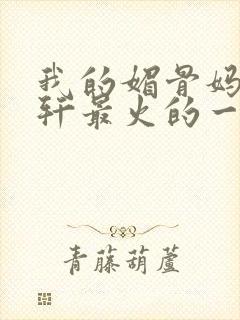 我的媚骨妈
轩最火的一
青藤葫蘆